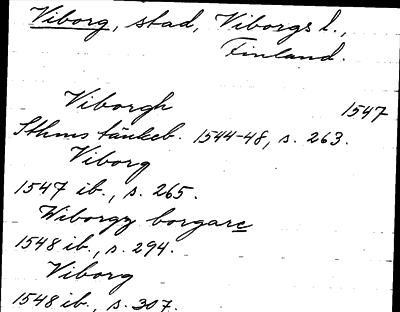 Viborg, stad, Viborgs l.,
Finland.
Viborgh 1547
Sthms tänkeb. 1544-48, s. 263.
Viborg
1547 ib., s. 265.
Wiborgz borgare
1548 ib., s. 294.
Viborg
1548 ib., s. 307.